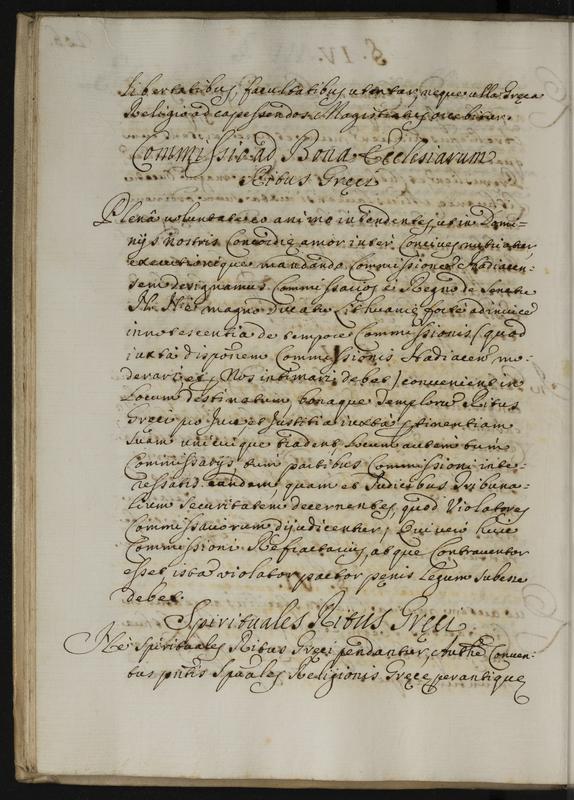 libertatibus, facultatibus utentur, neque ulla Græca
Religio ad capessendos Magistratus oberit.
Commissio ad Bona Ecclesiarum
Ritus Græci
Plena voluntate eo animo intendentes, ut in Domi-
nijs nostris Concordiæ amor inter Concives nutriatur,
executionique mandando Commissionem Hadiacen-
sem designamus Commissarios ex Regno de Senatu
N. N. ex magno Ducatu Lithuaniæ
innotescentia de tempore Commissionis, (quod
iuxta dispositionem Commissionis Hadiacen. mo-
derari et Nos intimari debet) convenient in
Locum destinatum bonaque Templorum Ritus
Græci pro Jure et Justitia iuxta pertinentiam
suam unicuique tradent, locum autem tum
Commissarijs, tum partibus Commissioni inte-
ressatis eandem, quam et Judicibus Tribuna-
lium securitatem decernentes, quod Violatores
Commissariorum dijudicentur, Qui vero huic
Commissioni Refractarius, absque Contraventor
esset, istac violator pactor. pænis Legum subesse
debet.
Spirituales Ritus Græci
Ne Spirituales Ritus Græci pendantur, Autho Conven-
tus pntis Spuales Religionis Græcæ per antiquæ